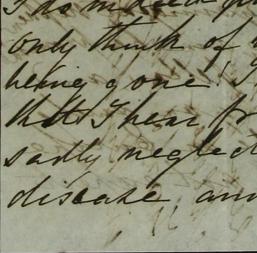 I do indeed
only think of
being gone! I
that I hear fr
sadly neglect
disease an